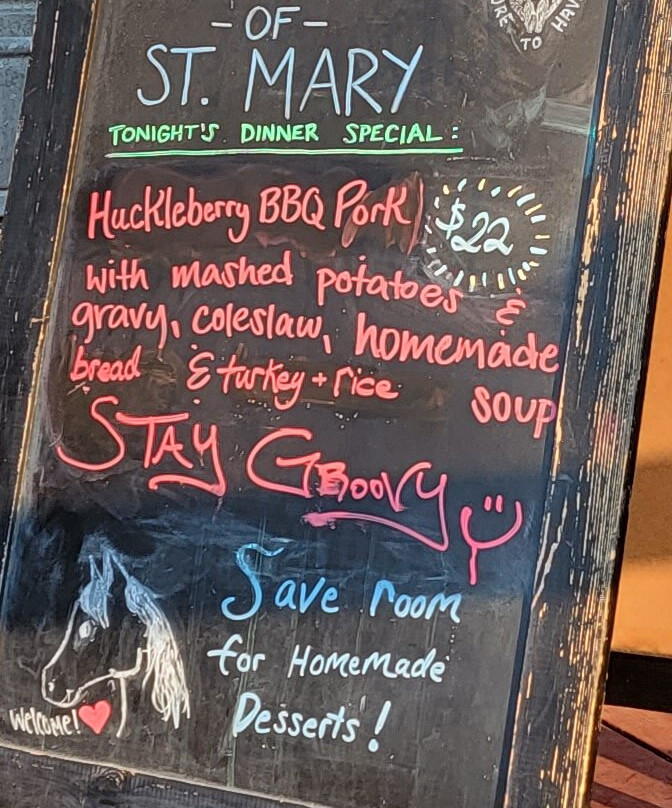 -OF-
ST. MARY
TO HAV
TONIGHT'S DINNER SPECIAL:
Huckleberry BBQ Pork $22
with mashed potatoes &
gravy, coleslaw, homemade
bread & turkey + rice soup
STAY GROOVY
Save room
for Homemade
Desserts!
Welcome!